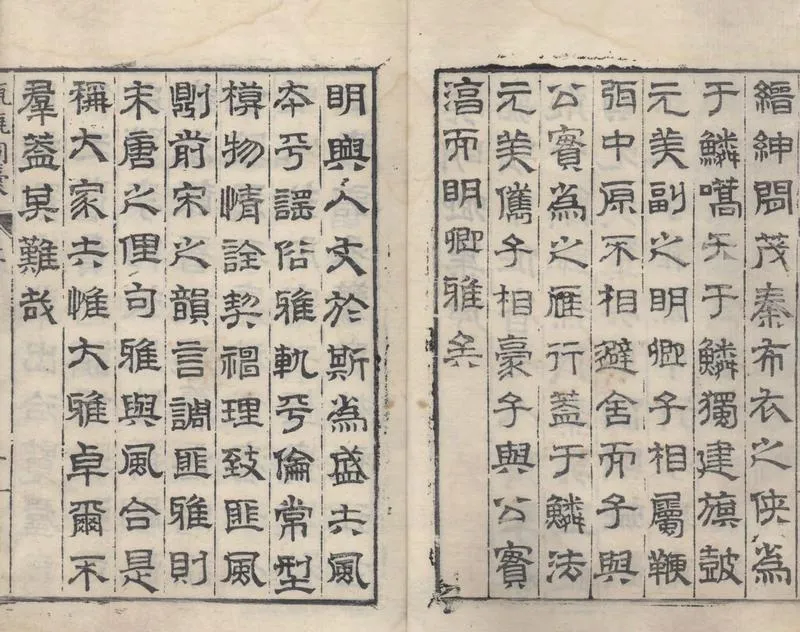 縉紳間茂秦布衣之俠為
于鱗嚆矢于鱗獨建旗鼓
元美副之明卿子相屬鞭
弭中原不相避舍而子與
公實為之雁行蓋于鱗法
元美儁子相豪子與公實
湻而明卿雅矣
明興人文於斯為盛夫風
本乎謠俗雅軌乎倫常型
模物情詮契理致匪風
則前宋之韻言調匪雅則
末唐之俚句雅與風合是
稱大家夫惟大雅卓爾不
羣蓋其難哉